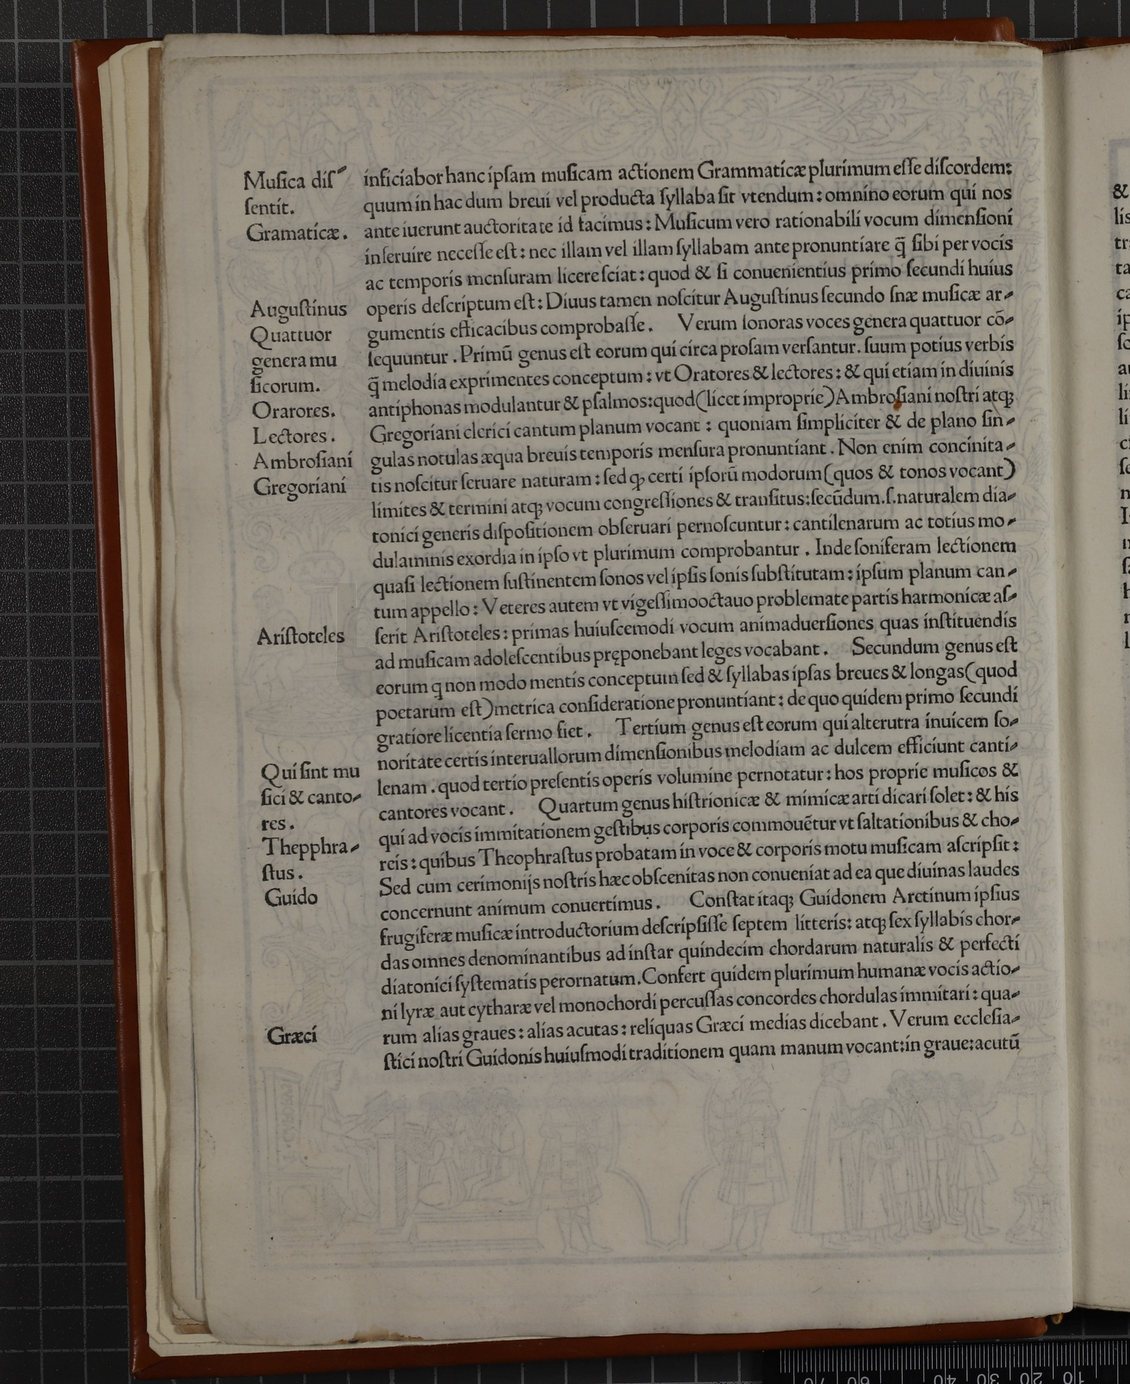 Muſica diſ-
ſentit.
Gramaticæ.
Auguſtinus
Quattuor
genera mu
ſicorum.
Orarores.
Lectores.
Ambroſiani
Gregoriani
Ariſtoteles
Qui ſint mu
ſici & canto-
res.
Thepphra-
ſtus.
Guido
Græci
inficiabor hanc ipſam muſicam actionem Grammaticæ plurimum eſſe diſcordem:
quum in hac dum breui vel producta ſyllaba ſit vtendum: omnino eorum qui nos
ante iuerunt auctoritate id facimus: Muſicum vero rationabili vocum dimenſioni
inſeruire neceſſe eſt: nec illam vel illam ſyllabam ante pronuntiare q̄ ſibi per vocis
ac temporis menſuram licere ſciat: quod & ſi conuenientius primo ſecundi huius
operis deſcriptum eſt: Diuus tamen noſcitur Auguſtinus ſecundo ſnæ muſicæ ar-
gumentis efficacibus comprobaſſe. Verum ſonoras voces genera quattuor cō-
ſequuntur. Primū genus eſt eorum qui circa proſam verſantur. ſuum potius verbis
q̄ melodia exprimentes conceptum: vt Oratores & lectores: & qui etiam in diuinis
antiphonas modulantur & pſalmos: quod (licet improprie) Ambroſiani noſtri atqꝫ
Gregoriani clerici cantum planum vocant: quoniam ſimpliciter & de plano ſin-
gulas notulas æqua breuis temporis menſura pronuntiant. Non enim concinita-
tis noſcitur ſeruare naturam: ſed qꝫ certi ipſorū modorum (quos & tonos vocant)
limites & termini atqꝫ vocum congreſſiones & tranſitus: ſecūdum.ſ.naturalem dia-
tonici generis diſpoſitionem obſeruari pernoſcuntur: cantilenarum ac totius mo-
dulaminis exordia in ipſo vt plurimum comprobantur. Inde ſoniferam lectionem
quaſi lectionem ſuſtinentem ſonos vel ipſis ſonis ſubſtitutam: ipſum planum can-
tum appello: Veteres autem vt vigeſſimooctauo problemate partis harmonicæ aſ-
ſerit Ariſtoteles: primas huiuſcemodi vocum animaduerſiones quas inſtituendis
ad muſicam adoleſcentibus pręponebant leges vocabant. Secundum genus eſt
eorum q non modo mentis conceptum ſed & ſyllabas ipſas breues & longas (quod
poetarum eſt) metrica conſideratione pronuntiant: de quo quidem primo ſecundi
gratiore licentia ſermo fiet. Tertium genus eſt eorum qui alterutra inuicem ſo-
noritate certis interuallorum dimenſionibus melodiam ac dulcem efficiunt canti-
lenam. quod tertio preſentis operis volumine pernotatur: hos proprie muſicos &
cantores vocant. Quartum genus hiſtrionicæ & mimicæ arti dicari ſolet: & his
qui ad vocis immitationem geſtibus corporis commouētur vt ſaltationibus & cho-
reis: quibus Theophraſtus probatam in voce & corporis motu muſicam aſcripſit:
Sed cum cerimonijs noſtris hæc obſcenitas non conueniat ad ea que diuinas laudes
concernunt animum conuertimus. Conſtat itaqꝫ Guidonem Aretinum ipſius
frugiferæ muſicæ introductorium deſcripſiſſe ſeptem litteris: atqꝫ ſex ſyllabis chor-
das omnes denominantibus ad inſtar quindecim chordarum naturalis & perfecti
diatonici ſyſtematis perornatum. Confert quidem plurimum humanæ vocis actio-
ni lyræ aut cytharæ vel monochordi percuſſas concordes chordulas immitari: qua-
rum alias graues: alias acutas: reliquas Græci medias dicebant. Verum eccleſia-
ſtici noſtri Guidonis huiuſmodi traditionem quam manum vocant: in graue: acutū